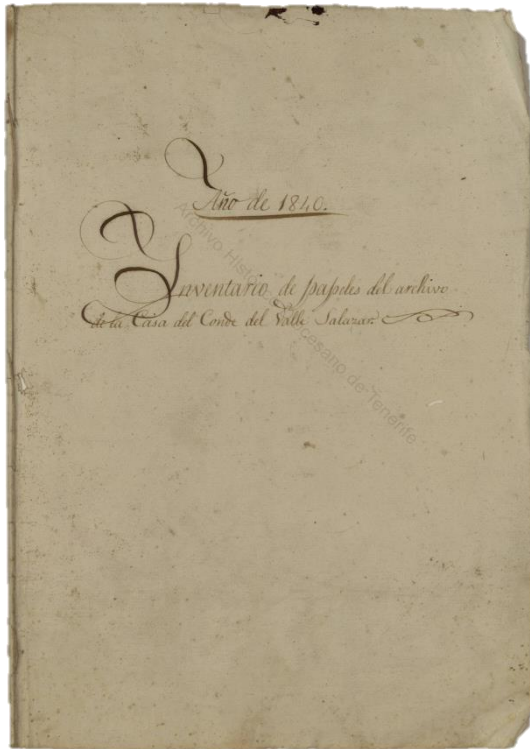 Año de 1840.
Ynventario de papeles del archivo
de la Casa del Conde del Valle Salazar.
Archivo Histórico Diocesano de Tenerife